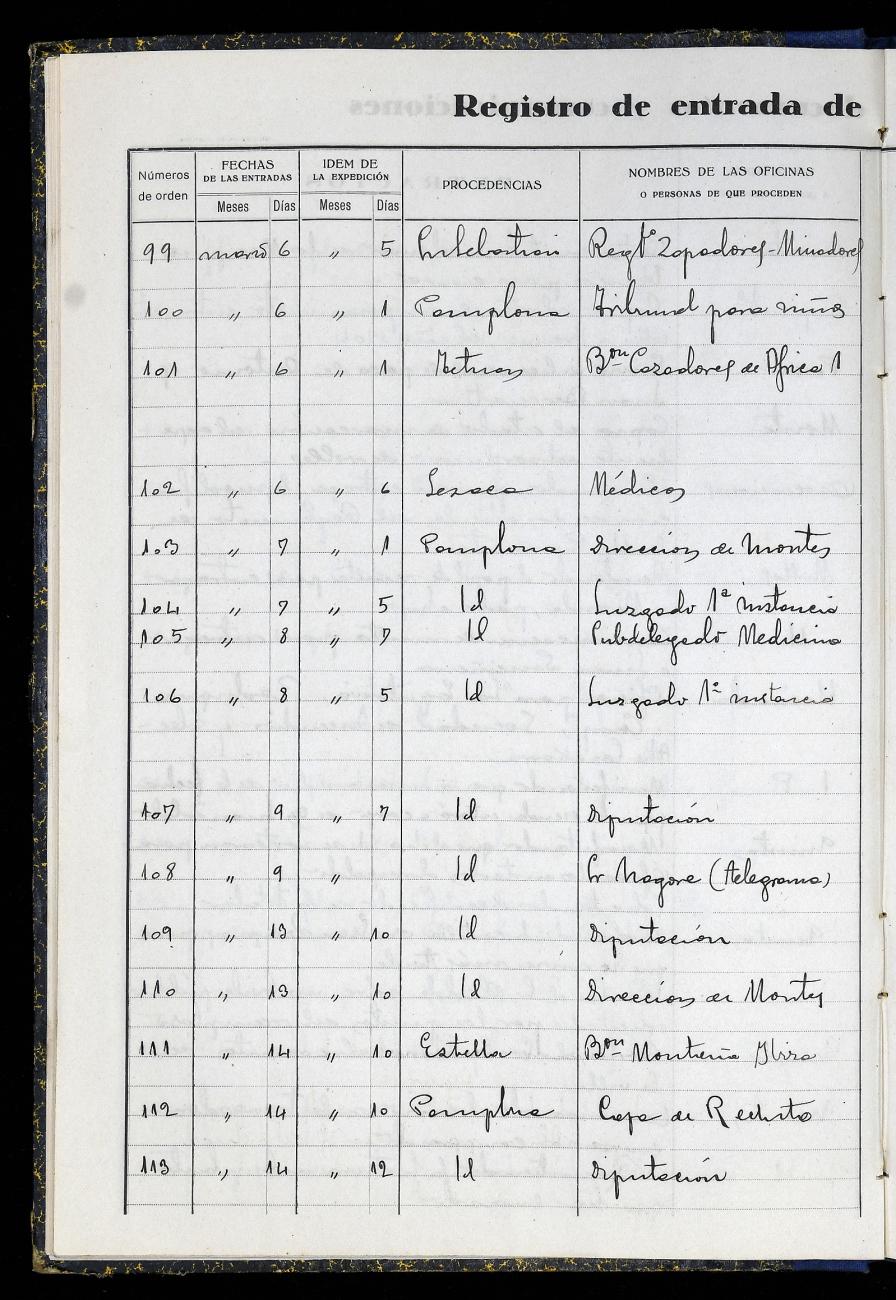 Registro de entrada de
Números de orden
FECHAS DE LAS ENTRADAS
IDEM DE LA EXPEDICIÓN
PROCEDENCIAS
NOMBRES DE LAS OFICINAS O PERSONAS DE QUE PROCEDEN
Meses Días Meses Días
99 marzo 6 " 5 Sn Sebastian Regto Zapadores-Minadores
100 " 6 " 1 Pamplona Tribunal para niños
101 " 6 " 1 Tetuan Bon Cazadores de Africa 1
102 " 6 " 6 Lesaca Médicos
103 " 7 " 1 Pamplona Direccion de Montes
104 " 7 " 5 Id Juzgado 1ª instancia
105 " 8 " 7 Id Subdelegado Medicina
106 " 8 " 5 Id Juzgado 1ª instancia
107 " 9 " 7 Id Diputación
108 " 9 " Id Sr Nagore (telegrama)
109 " 13 " 10 Id Diputación
110 " 13 " 10 Id Direccion de Montes
111 " 14 " 10 Estella Bon Montaña
112 " 14 " 10 Pamplona Caja de Recluta
113 " 14 " 12 Id Diputación